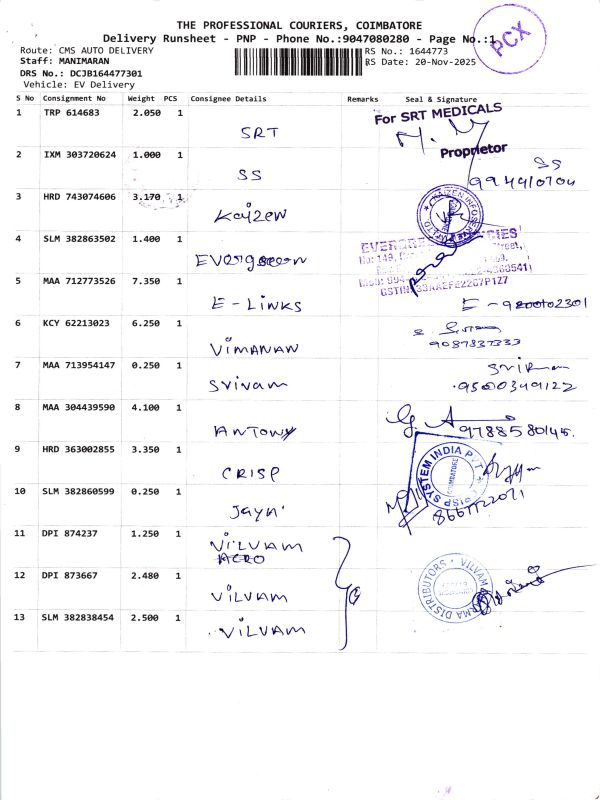 THE PROFESSIONAL COURIERS, COIMBATORE
Delivery Runsheet - PNP - Phone No.:9047080280 - Page No.:1
PCX
Route: CMS AUTO DELIVERY
RS No.: 1644773
Staff: MANIMARAN
RS Date: 20-Nov-2025
DRS No.: DCJB164477301
Vehicle: EV Delivery
S No Consignment No Weight PCS Consignee Details Remarks Seal & Signature
1 TRP 614683 2.050 1 SRT
For SRT MEDICALS
Proprietor
2 IXM 303720624 1.000 1 SS
SS
3 HRD 743074606 3.170 1 Kaizen
4 SLM 382863502 1.400 1 EVergreen
5 MAA 712773526 7.350 1 E-LINKS
GSTIN: 33AAEFE2207P1Z7
6 KCY 62213023 6.250 1 VIMANAN
9087837333
7 MAA 713954147 0.250 1 Srivam
8 MAA 304439590 4.100 1 ANTONY
9788580145.
9 HRD 363002855 3.350 1 CRISP
CRISP SYSTEM INDIA PVT
COIMBATORE
10 SLM 382860599 0.250 1 Jayni
11 DPI 874237 1.250 1 VILVAM
12 DPI 873667 2.480 1 VILVAM
VILVAM PHARMA DISTRIBUTORS
13 SLM 382838454 2.500 1 VILVAM